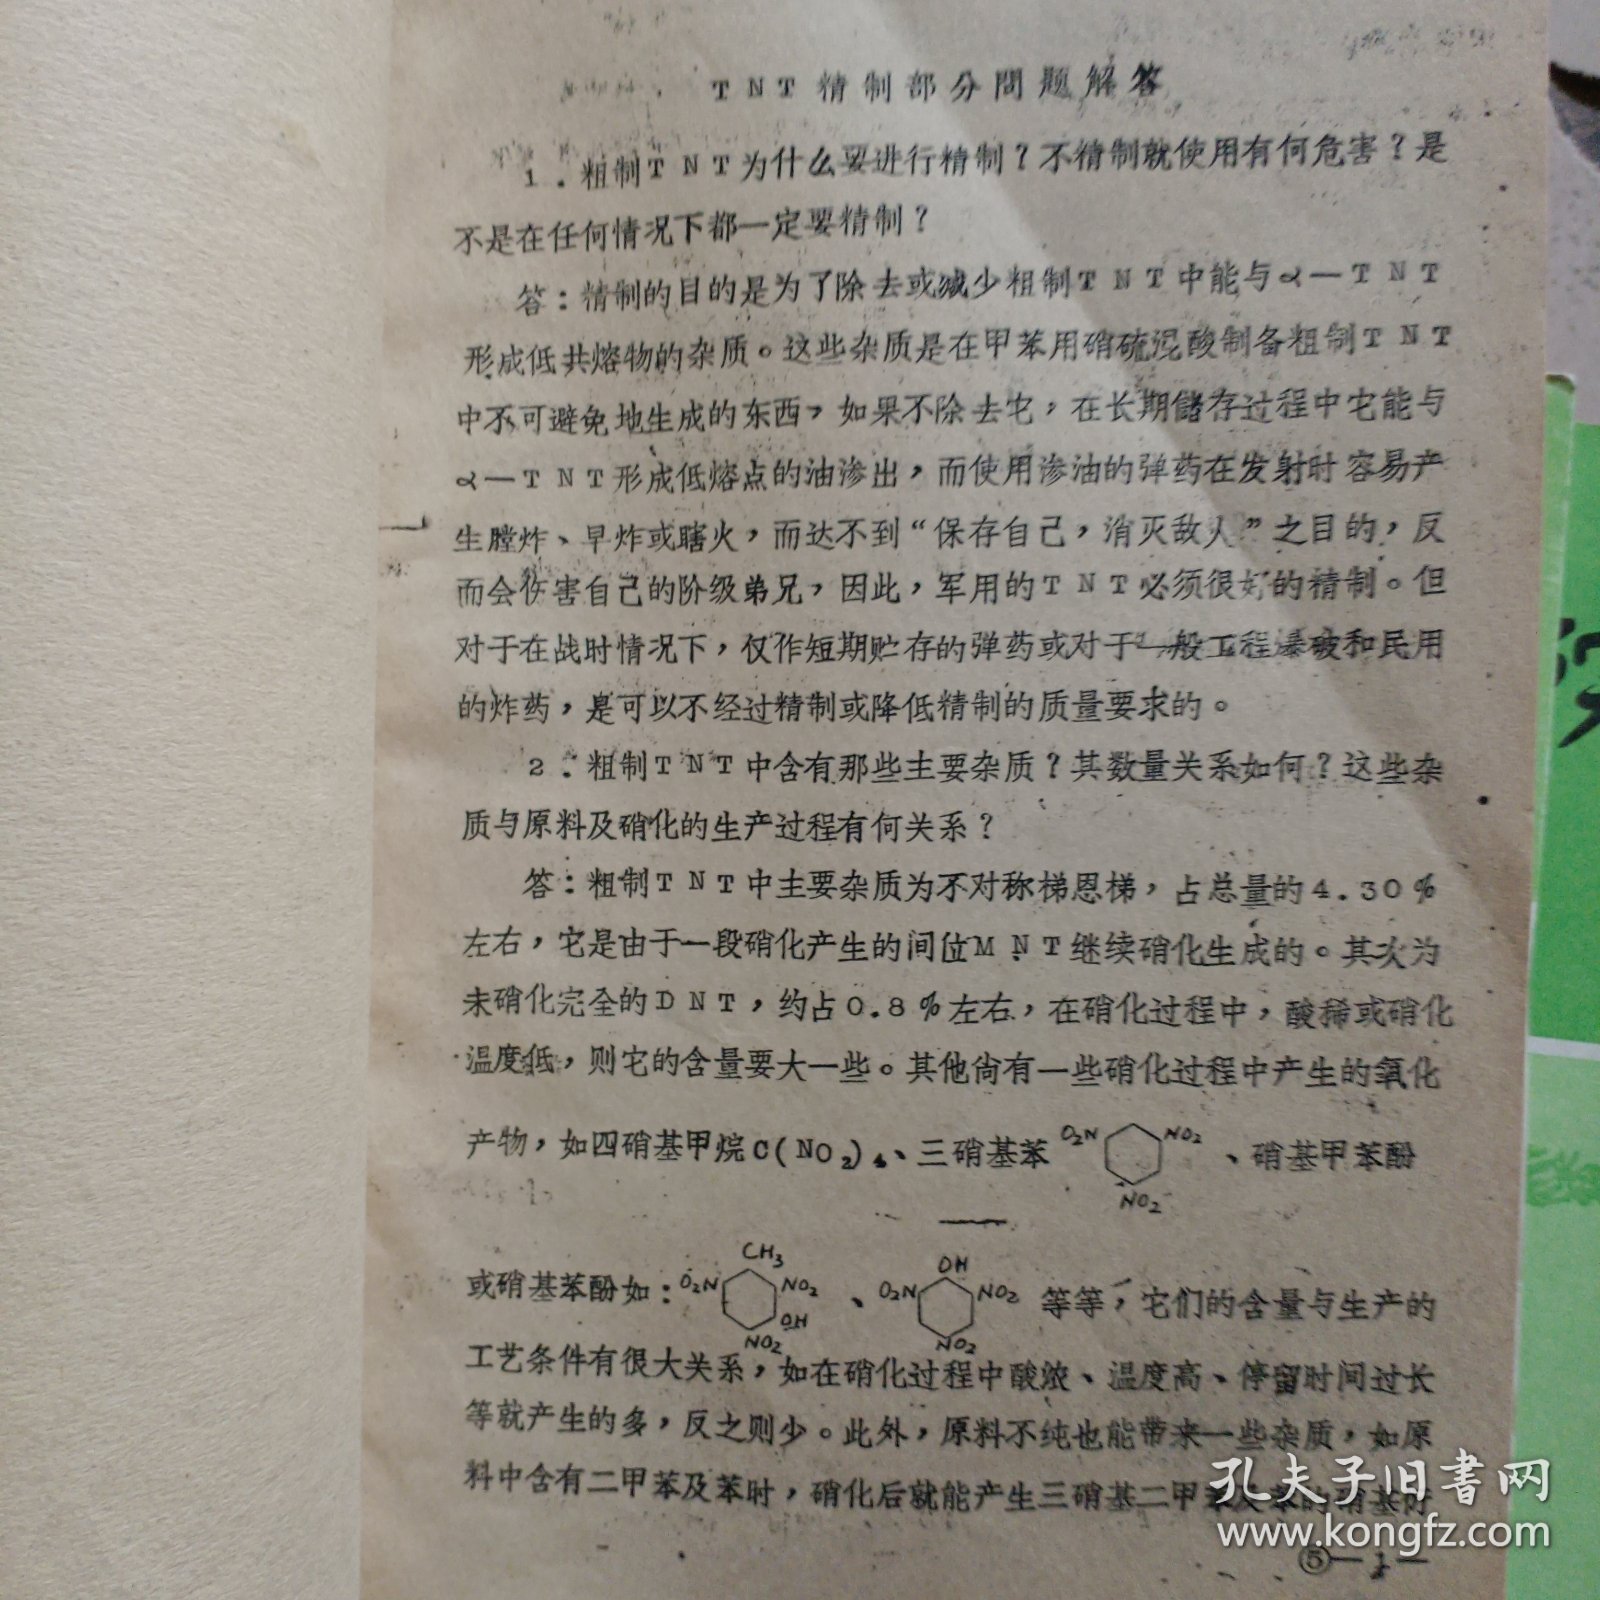 TNT精制部分問題解答
1.粗制TNT为什么要进行精制?不精制就使用有何危害?是
不是在任何情况下都一定要精制?
答:精制的目的是为了除去或减少粗制TNT中能与α—TNT
形成低共熔物的杂质。这些杂质是在甲苯用硝硫混酸制备粗制TNT
中不可避免地生成的东西,如果不除去它,在长期儲存过程中它能与
α—TNT形成低熔点的油渗出,而使用渗油的弹药在发射时容易产
生膛炸、早炸或瞎火,而达不到“保存自己,消灭敌人”之目的,反
而会伤害自己的阶级弟兄,因此,军用的TNT必须很好的精制。但
对于在战时情况下,仅作短期贮存的弹药或对于一般工程爆破和民用
的炸药,是可以不经过精制或降低精制的质量要求的。
2.粗制TNT中含有那些主要杂质?其数量关系如何?这些杂
质与原料及硝化的生产过程有何关系?
答:粗制TNT中主要杂质为不对称梯恩梯,占总量的4.30%
左右,它是由于一段硝化产生的间位MNT继续硝化生成的。其次为
未硝化完全的DNT,约占0.8%左右,在硝化过程中,酸稀或硝化
温度低,则它的含量要大一些。其他尚有一些硝化过程中产生的氧化
产物,如四硝基甲烷C(NO2)4、三硝基苯 O2N NO2 NO2 、硝基甲苯酚
或硝基苯酚如: CH3 O2N NO2 OH NO2 、 OH O2N NO2 NO2 等等,它们的含量与生产的
工艺条件有很大关系,如在硝化过程中酸浓、温度高、停留时间过长
等就产生的多,反之则少。此外,原料不纯也能带来一些杂质,如原
料中含有二甲苯及苯时,硝化后就能产生三硝基二甲苯及苯的硝基衍
孔夫子旧書网
www.kongfz.com
⑤—1—